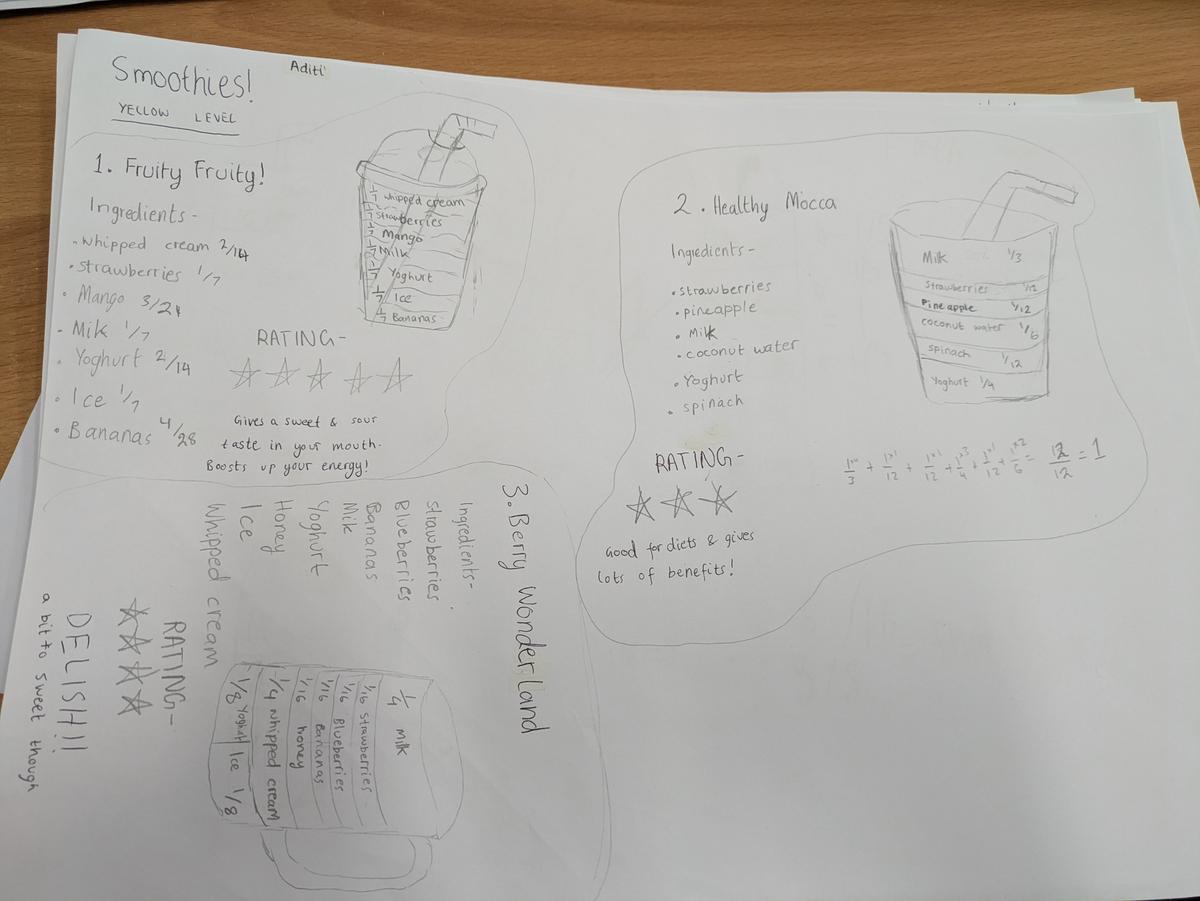 Smoothies!
Aditi
YELLOW LEVEL
1. Fruity Fruity!
Ingredients -
• Whipped cream 2/14
• strawberries 1/7
• Mango 3/21
• Milk 1/7
• Yoghurt 2/14
• Ice 1/7
• Bananas 4/28
1/7 whipped cream
1/7 strawberries
1/7 Mango
1/7 Milk
1/7 Yoghurt
1/7 Ice
1/7 Bananas
RATING -
Gives a sweet & sour
taste in your mouth.
Boosts up your energy!
2. Healthy Mocca
Ingredients -
• strawberries
• pineapple
• Milk
• coconut water
• Yoghurt
• spinach
Milk 1/3
Strawberries 1/12
Pineapple 1/12
coconut water 1/6
spinach 1/12
Yoghurt 1/4
RATING -
Good for diets & gives
lots of benefits!
1x4/3 + 1x1/12 + 1x1/12 + 1x3/4 + 1x1/12 + 1x2/6 = 12/12 = 1
3. Berry Wonder Land
Ingredients -
Strawberries
Blueberries
Bananas
Milk
Yoghurt
Honey
Ice
Whipped cream
1/4 Milk
1/16 strawberries
1/16 Blueberries
1/16 Bananas
1/16 honey
1/4 whipped cream
1/8 Yoghurt Ice 1/8
RATING -
DELISH!!
a bit to sweet though